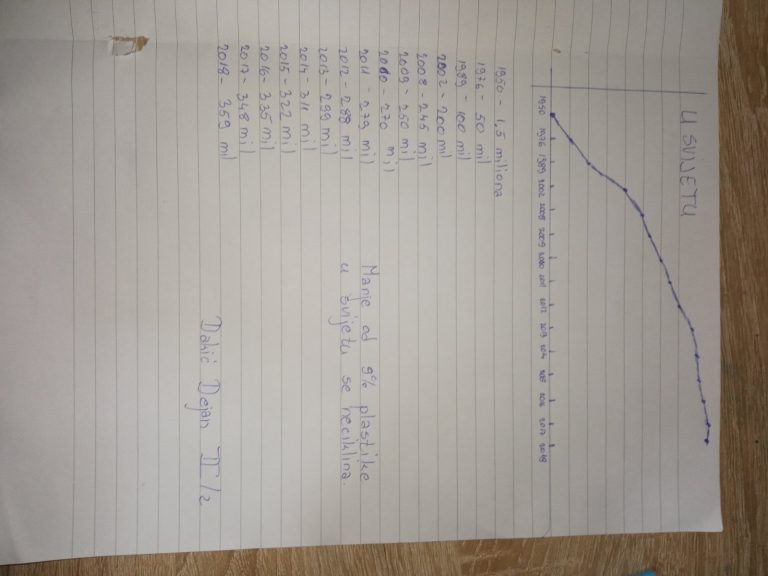 U SVIJETU
1950 1976 1989 2002 2008 2009 2010 2011 2012 2013 2014 2015 2016 2017 2018
1950 - 1,5 miliona
1976 - 50 mil
1989 - 100 mil
2002 - 200 mil
2008 - 245 mil
2009 - 250 mil
2010 - 270 mil
2011 - 279 mil
2012 - 288 mil
2013 - 299 mil
2014 - 311 mil
2015 - 322 mil
2016 - 335 mil
2017 - 348 mil
2018 - 359 mil
Manje od 9% plastike
u svijetu se reciklira.
Dahić Dejan II/2